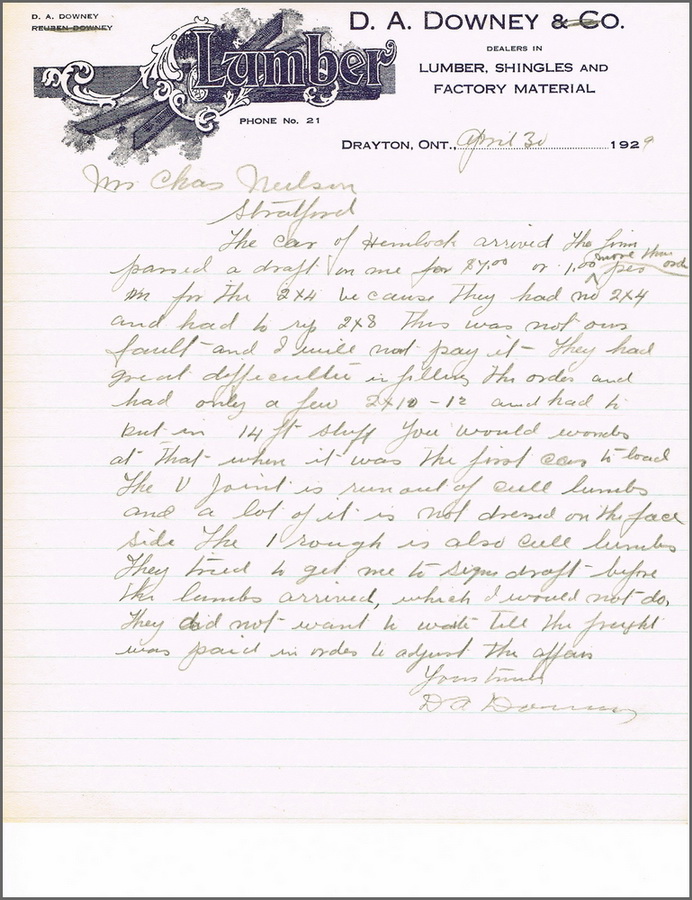 D. A. DOWNEY
REUBEN DOWNEY
Lumber
PHONE No. 21
D. A. DOWNEY & CO.
DEALERS IN
LUMBER, SHINGLES AND
FACTORY MATERIAL
DRAYTON, ONT., April 30 1929
Mr Chas Neilson
Stratford
The car of Hemlock arrived The firm
passed a draft on me for $7.00 or 1.00 more than order per
m for the 2x4 because They had no 2x4
and had to rip 2x8 This was not our
fault and I will not pay it They had
great difficultie in filling the order and
had only a few 2x10 - 12 and had to
put in 14 ft stuff You would wonder
at that when it was the first car to load
The V Joint is run out of cull lumber
and a lot of it is not dressed on the face
side The 1 rough is also cull lumber
They tried to get me to sign draft before
the lumber arrived, which I would not do.
They did not want to wait till the freight
was paid in order to adjust the affair
Yours truly
D A Downey